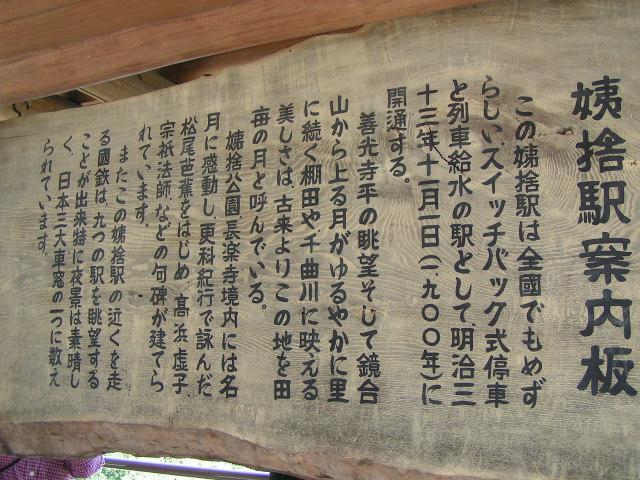 姨捨駅案内板
この姨捨駅は全國でもめず
らしいスイッチバック式停車
と列車給水の駅として、明治三
十三年十一月一日(一、九〇〇年)に
開通する。
善光寺平の眺望そして鏡台
山から上る月がゆるやかに里
に続く棚田や千曲川に映える
美しさは、古来よりこの地を田
毎の月と呼んでいる。
姨捨公園、長楽寺境内には名
月に感動し、更科紀行で詠んだ
松尾芭蕉をはじめ、高浜虚子、
宗祇法師などの句碑が建てら
れています。
またこの姨捨駅の近くを走
る國鉄は、九つの駅を眺望する
ことが出来特に夜景は素晴し
く、日本三大車窓の一つに数え
られています。